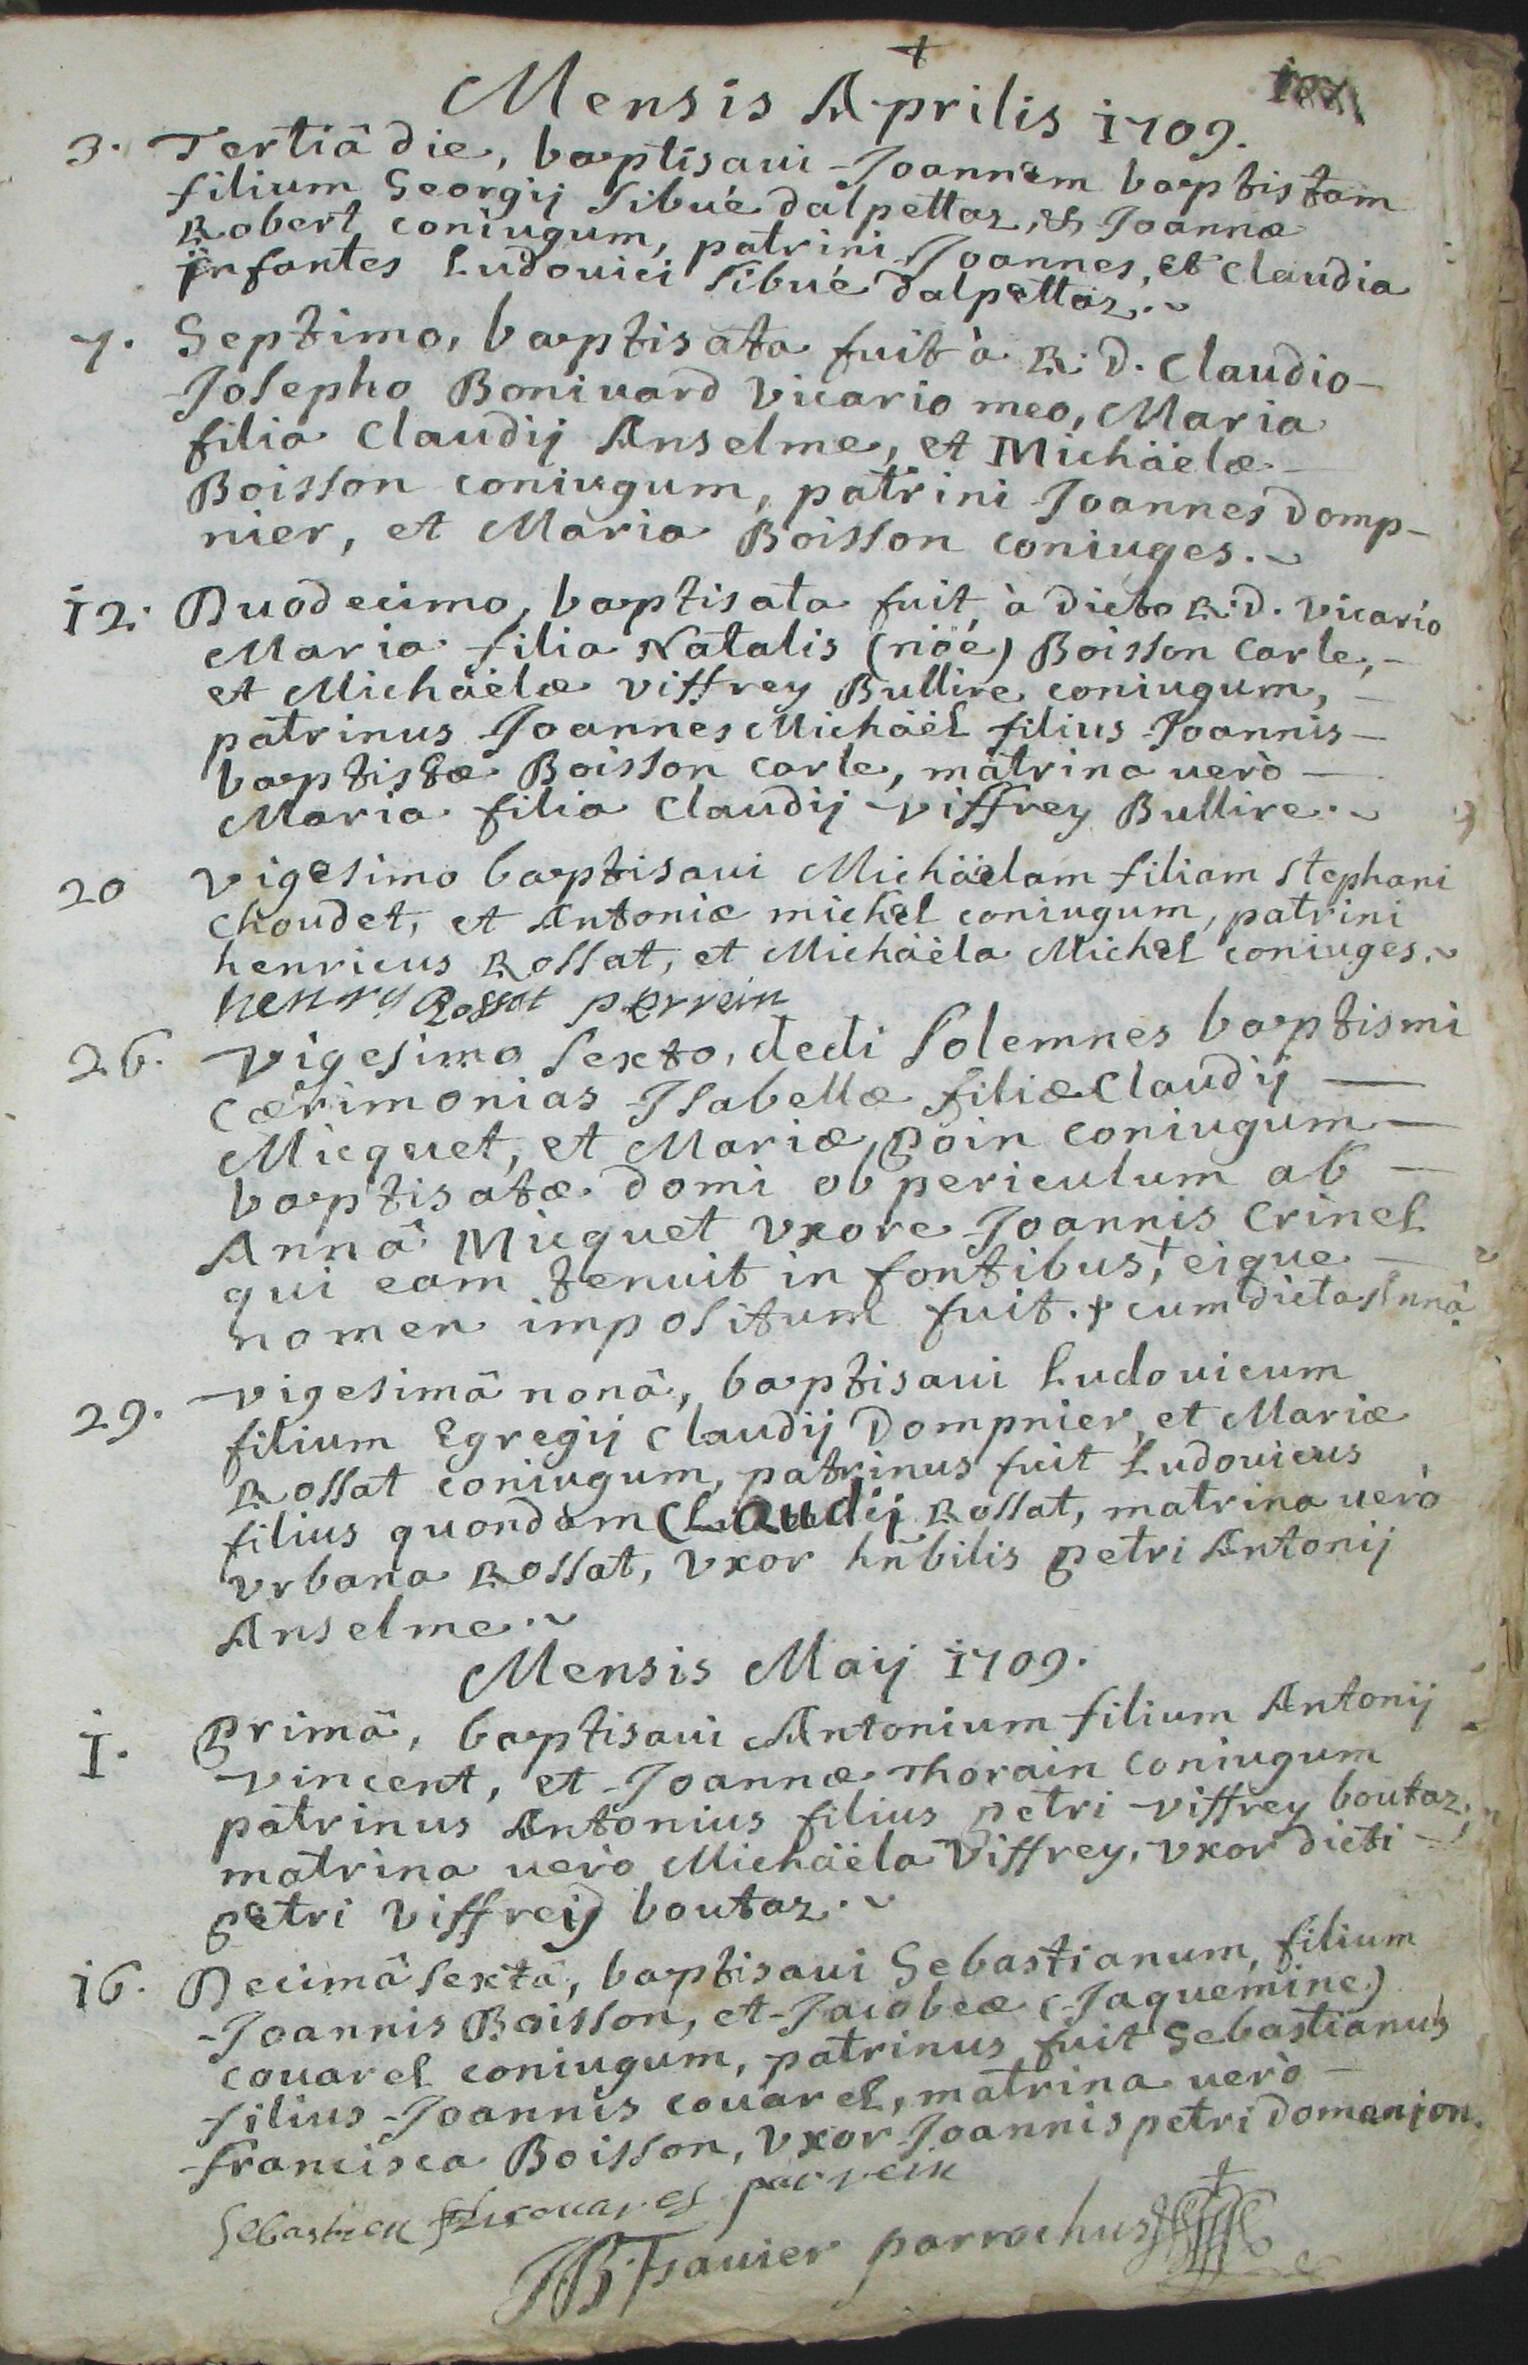 +
Mensis Aprilis 1709.
3. Tertiâ die, baptisaui Joannem baptistam
filium Georgij Sibué dalpettaz, & Joannæ
Robert coniugum, patrini Joannes, et Claudia
infantes Ludouici Sibué dalpettaz.~
7. Septimo, baptisata fuit à R. D. Claudio-
Josepho Boniuard Vicario meo, Maria
filia Claudij Anselme, et Michäelæ-
Boisson coniugum, patrini Joannes Domp-
nier, et Maria Boisson coniuges.~
12. Duodecimo, baptisata fuit, à dicto R. D. Vicario
Maria filia Natalis (nöé) Boisson Carle,-
et Michäelæ Viffrey Bullire coniugum, -
patrinus Joannes Michäel filius Joannis-
baptistæ Boisson Carle, matrina uerò -
Maria filia Claudij Viffrey Bullire.~
20 Vigesimo baptisaui Michäelam filiam Stephani
Choudet, et Antoniæ michel coniugum, patrini
henricus Rossat, et Michäela Michel coniuges.~
henry Rossat perrein
26. Vigesimo Sexto, dedi Solemnes baptismi
Cærimonias Isabellæ filiæ Claudij -
Micquet, et Mariæ Poin coniugum -
baptisatæ domi ob periculum ab -
Annâ Micquet Vxore Joannis Crinel
qui eam tenuit in fontibus,+ eique -
nomen impositum fuit. + cum dicta Annâ.
29. Vigesimâ nonâ, baptisaui Ludouicum
filium Egregij Claudij Dompnier, et Mariæ
Rossat coniugum, patrinus fuit Ludouicus
filius quondam Claudij Rossat, matrina uerò
Vrbana Rossat, Vxor hñbilis Petri Antonij
Anselme.~
Mensis Maij 1709.
1. Primâ, baptisaui Antonium filium Antonij
Vincent, et Joannæ Thorain coniugum
patrinus Antonius filius Petri Viffrey boutaz,
matrina uerò Michäela Viffrey, Vxor dicti -
Petri Viffrey boutaz.~
16. Decimâ Sextâ, baptisaui Sebastianum, filium
Joannis Boisson, et Jacobeæ (Jaquemine)
Couarel coniugum, patrinus fuit Sebastianus
filius Joannis Couarel, matrina uerò -
Francisca Boisson, Vxor Joannis petri Domenjon.
Sebastien couarel parrein
JB. Tsauier parrochus